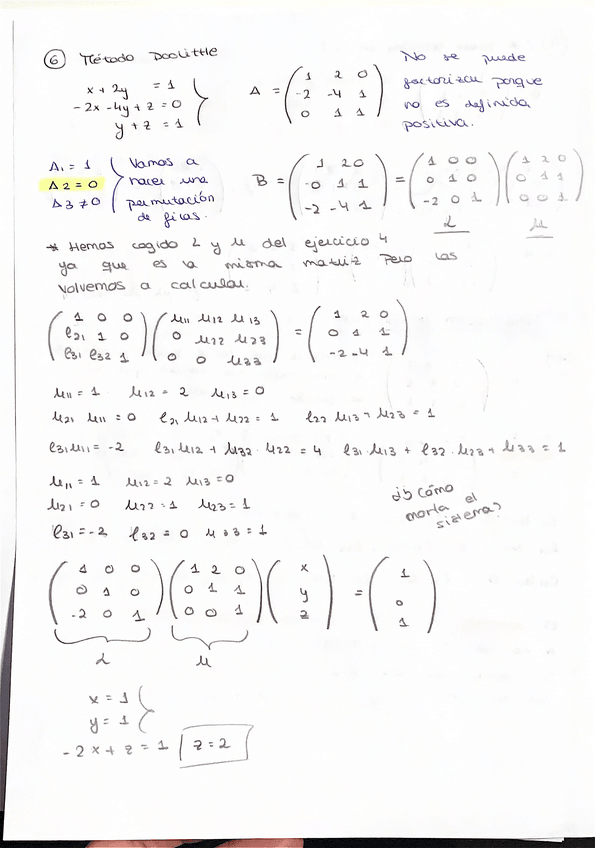 6 Método Doolittle
x + 2y = 1
-2x -4y + z = 0
y + z = 1
A = ( 1 2 0
-2 -4 1
0 1 1 )
No se puede
factorizar porque
no es definida
positiva.
Δ1 = 1
Δ2 = 0
Δ3 ≠ 0
Vamos a
hacer una
permutación
de filas.
B = ( 1 2 0
0 1 1
-2 -4 1 ) = ( 1 0 0
0 1 0
-2 0 1 ) ( 1 2 0
0 1 1
0 0 1 )
L
U
* Hemos cogido L y U del ejercicio 4
ya que es la misma matriz pero las
volvemos a calcular.
( 1 0 0
l21 1 0
l31 l32 1 ) ( u11 u12 u13
0 u22 u23
0 0 u33 ) = ( 1 2 0
0 1 1
-2 -4 1 )
u11 = 1 u12 = 2 u13 = 0
u21 u11 = 0 l21 u12 + u22 = 1 l22 u13 + u23 = 1
l31 u11 = -2 l31 u12 + u32 · u22 = 4 l31 · u13 + l32 · u23 + u33 = 1
u11 = 1 u12 = 2 u13 = 0
u21 = 0 u22 = 1 u23 = 1
l31 = -2 l32 = 0 u33 = 1
Cómo
monta el
sistema?
( 1 0 0
0 1 0
-2 0 1 ) ( 1 2 0
0 1 1
0 0 1 ) ( x
y
z ) = ( 1
0
1 )
L U
x = 1
y = 1
-2x + z = 1 z = 2